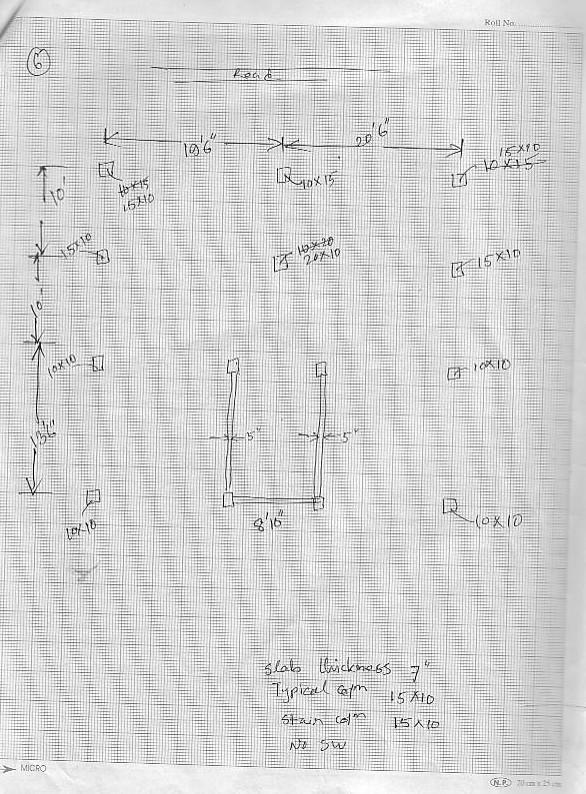 Roll No.
6
Road
19'6"
20'6"
10'
10×15
15×10
10×15
15×10
10×15
15×10
10×20
20×10
15×10
10'
10×10
10×10
13'6"
5"
5"
8'10"
10×10
10×10
Slab thickness 7"
Typical colm 15×10
Stair colm 15×10
No SW
MICRO
N.P. 20 cm x 25 cm